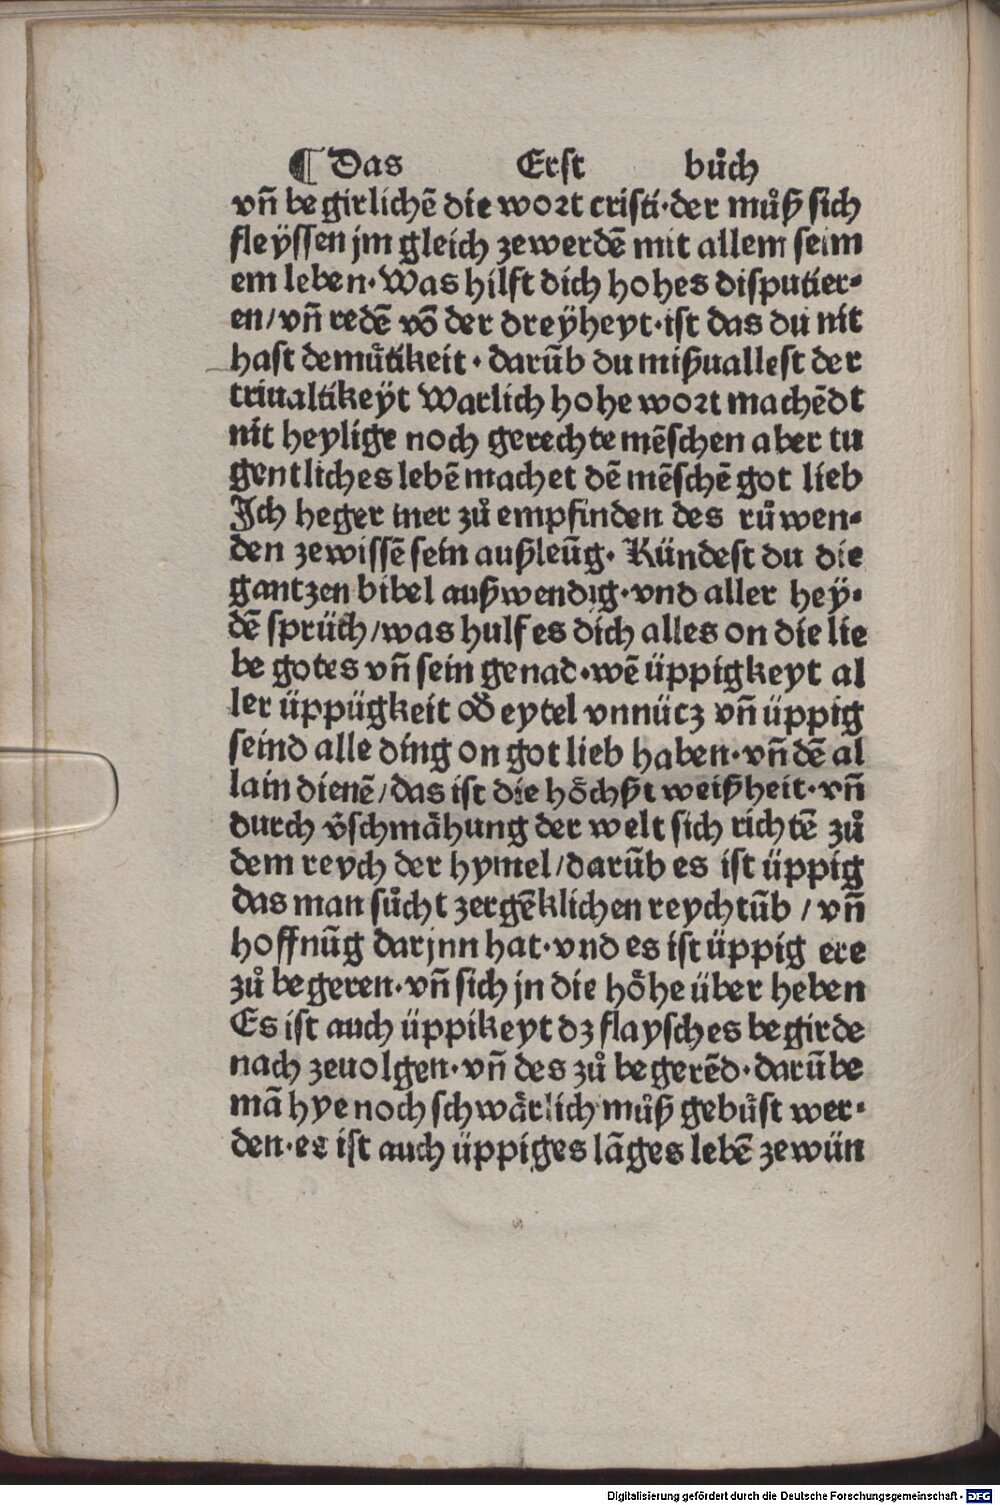 ¶ Das Erst bůch
vñ begirlichē die wort cristi·der můß sich
fleÿssen jm gleich zewerdē mit allem seim
em leben·Was hilft dich hohes disputier⸗
en/vñ redē vō der dreÿheyt·ist das du nit
hast demuͤtikeit·darūb du mißuallest der
triualtikeÿt Warlich hohe wort machēdt
nit heylige noch gerechte mēschen aber tu
gentliches lebē machet dē mēschē got lieb
Ich heger mer zů empfinden des růwen⸗
den zewissē sein außleūg·Kündest du die
gantzen bibel außwendig·vnd aller heÿ⸗
dē sprüch/was hulf es dich alles on die lie
be gotes vñ sein genad·wē üppigkeyt al
ler üppügkeit od̄ eytel vnnücz vñ üppig
seind alle ding on got lieb haben·vñ dē al
lain dienē/das ist die hoͤchßt weißheit·vñ
durch v̄schmaͤhung der welt sich richtē zů
dem reych der hymel/darūb es ist üppig
das man sůcht zergēklichen reychtūb/vñ
hoffnūg darjnn hat·vnd es ist üppig ere
zů begeren·vñ sich jn die hoͤhe über heben
Es ist auch üppikeyt dz flaysches begirde
nach zeuolgen·vñ des zů begerēd·darūbe
mā hye noch schwaͤrlich můß gebuͤst wer⸗
den·es ist auch üppiges lāges lebē zewün
Digitalisierung gefördert durch die Deutsche Forschungsgemeinschaft - DFG